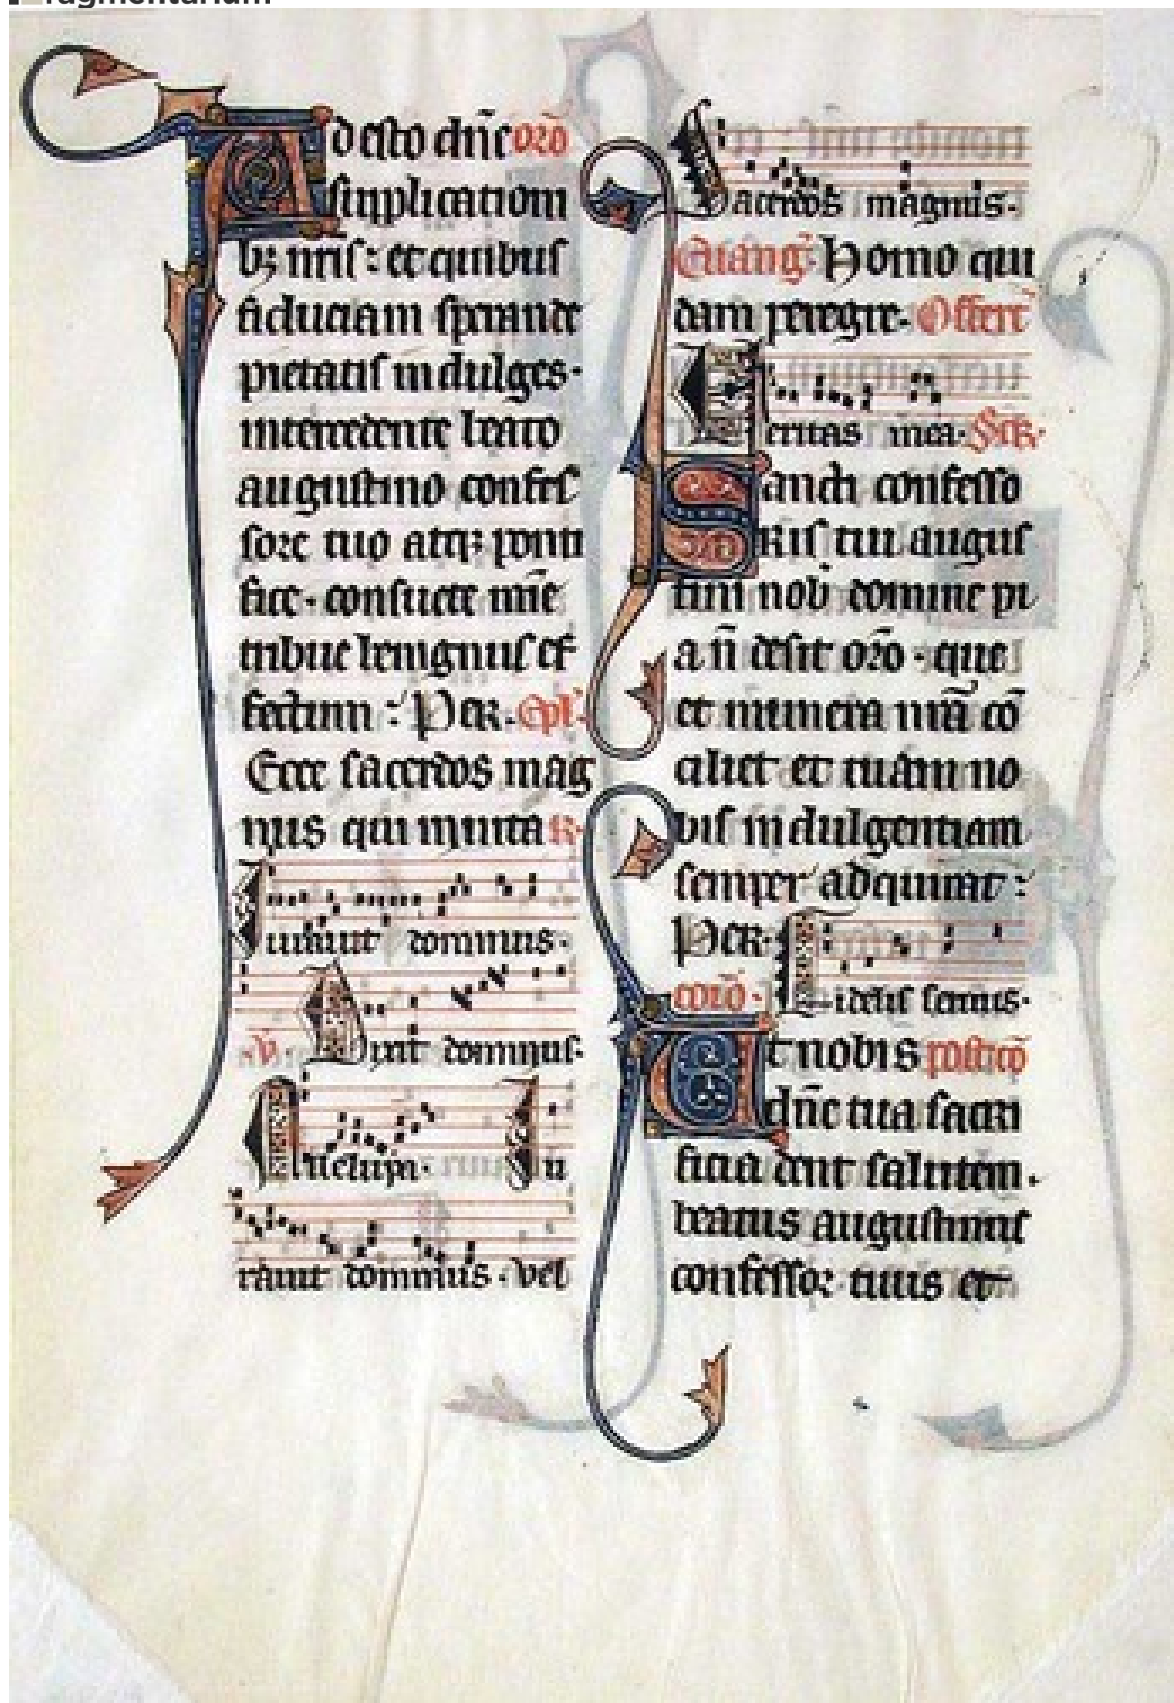 Adesto dn̄e orō
supplication
bꝫ nr̄is: et quibus
fiduciam sperande
pietatis indulges.
intercedente beato
augustino confes
sore tuo atqꝫ ponti
fice. consuete mīe
tribue benignus ef
fectum: Per. Epl̄.
Ecce sacerdos mag
nus qui in uita R.
Iurauit dominus.
V. Dixit dominus.
Alleluya. Iu
rauit dominus. vel
Sacerdos magnus.
Euanḡ. Homo qui
dam peregre. Offert̄
Ueritas mea. Secr̄.
Sancti confesso
ris tui augus
tini nob̄ domine pi
a n̄ desit orō. que
et munera nr̄a cō
ciliet et tuam no
bis indulgentiam
semper adquirat:
Per.
cōiō. Fidelis seruus.
Ut nobis postcō
dn̄e tua sacri
ficia dent salutem.
beatus augustinus
confessor tuus et